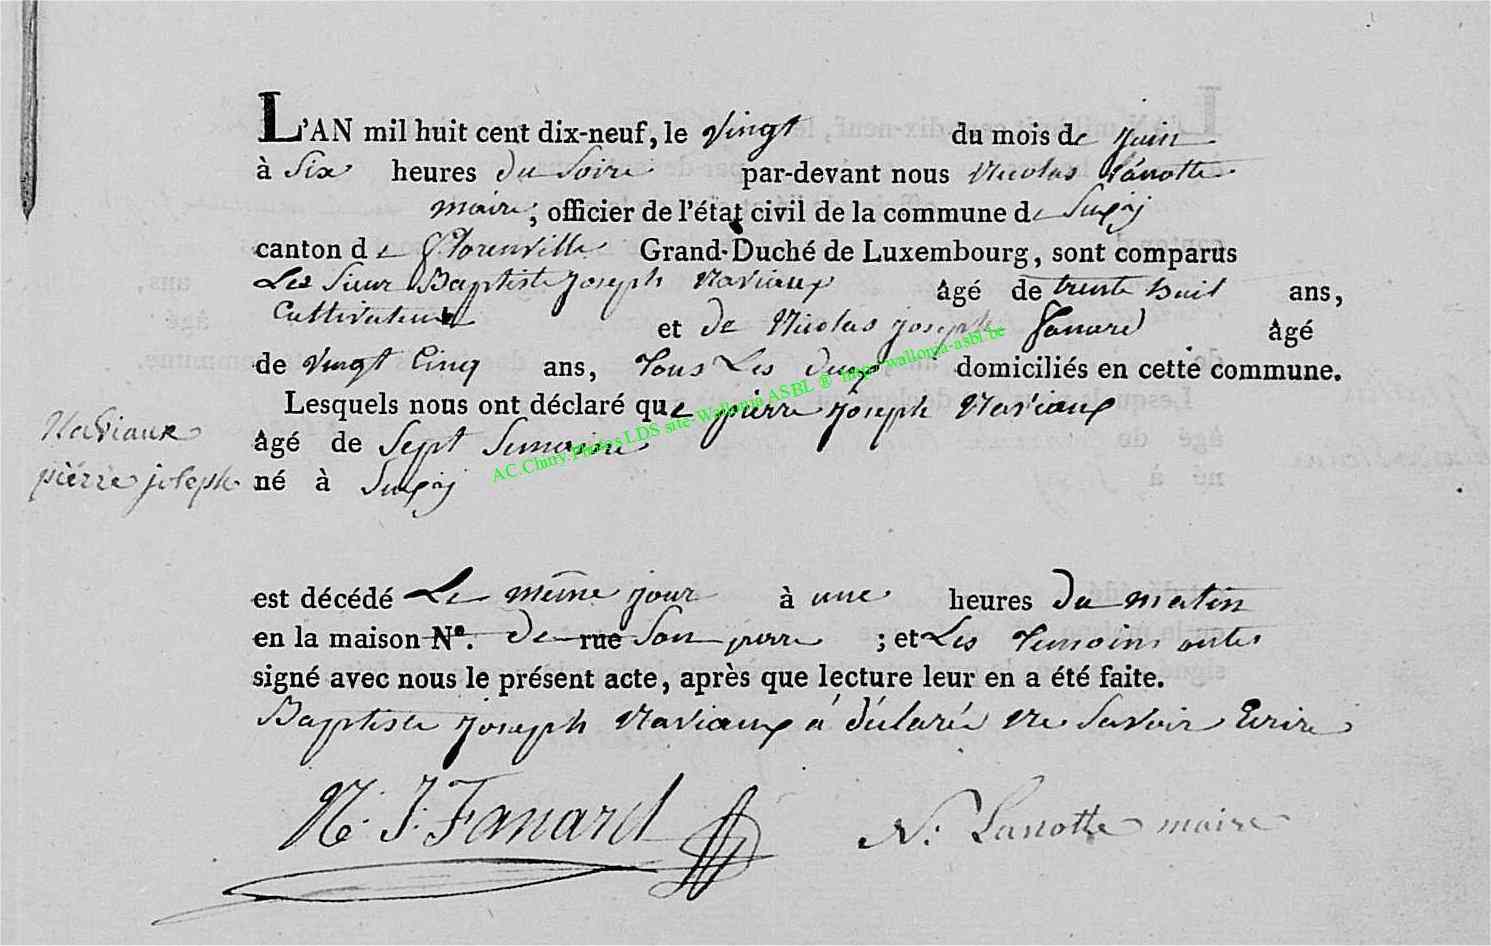 L'AN mil huit cent dix-neuf, le vingt du mois de Juin
à Six heures du Soire par-devant nous Nicolas Lanotte
maire, officier de l'état civil de la commune de Suxÿ
canton de Florenville Grand-Duché de Luxembourg, sont comparus
Les Sieur Baptiste Joseph Naviaux âgé de trente huit ans,
Cultivateur et de Nicolas Joseph Fanard âgé
de vingt Cinq ans, Tous Les deux domiciliés en cette commune.
Lesquels nous ont déclaré que pierre Joseph Naviaux
Naviaux
âgé de Sept Semaine
pierre joseph
né à Suxÿ
AC.Chiny.Photos LDS site-Wallonia ASBL ® http:wallonia-asbl.be
est décédé Le même jour à une heures du matin
en la maison Nº. De rue Son pere ; et Les Temoins ontes
signé avec nous le présent acte, après que lecture leur en a été faite.
Baptiste Joseph Naviaux á déclaré Ne Savoir Ecrire
N. J. Fanard N. Lanotte maire